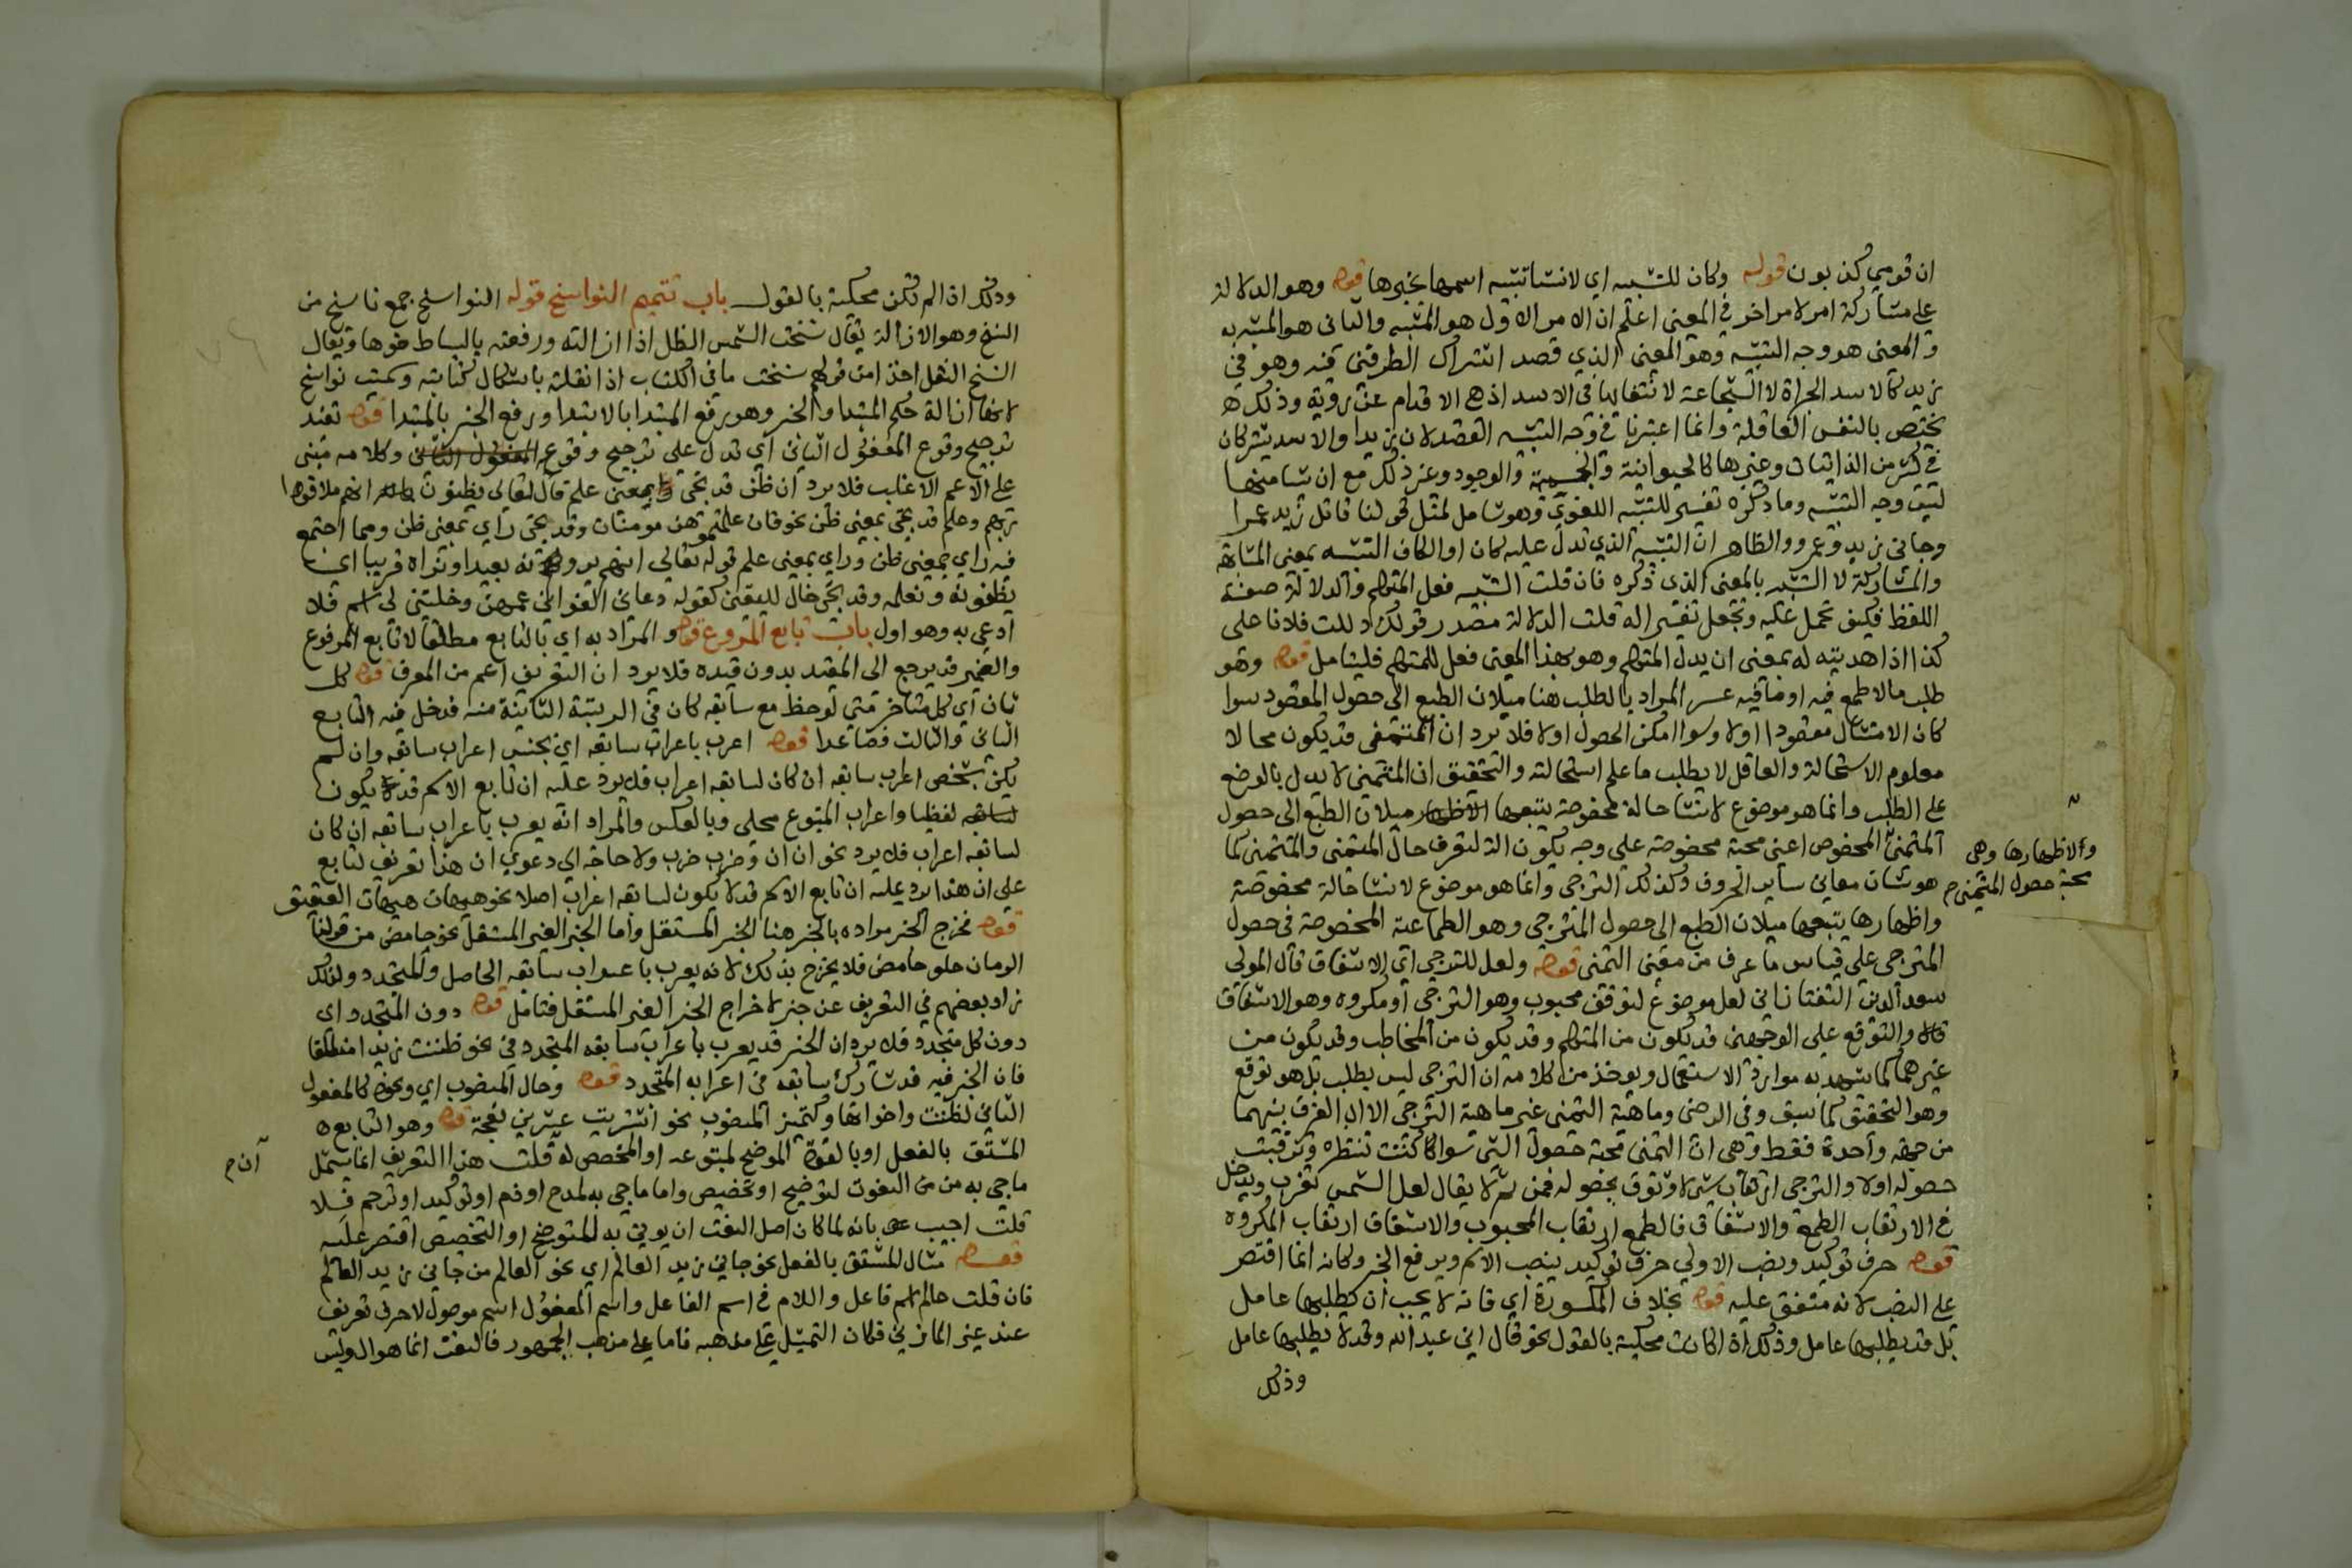 ان قومي كذبون قوله وكان للتشبيه اي لانشا تشبيه اسمها بخبرها قوله وهو الدلالة
على مشاركة امر لامر اخر في المعنى اعلم ان الامر الاول هو المشبه والثاني هو المشبه به
والمعنى هو وجه التشبيه وهو المعنى الذي قصد اشتراك الطرفين فيه وهو في
زيد كالاسد الجراة لا الشجاعة لانتفائها في الاسد اذ هي الاقدام عن روية وذلك
يختص بالنفس العاقلة وانما اعتبرنا في وجه التشبيه القصد لان زيدا والاسد يشتركان
في كثير من الذاتيات وغيرها كالحيوانية والجسمية والوجود وغير ذلك مع ان شيا منها
ليس وجه التشبيه وما ذكره تفسير للتشبيه اللغوي وهو شامل لمثل قولنا قاتل زيد عمرا
وجاني زيد وعمرو والظاهر ان التشبيه الذي تدل عليه كان او الكاف التشبيه بمعنى المشابهة
والمشاركة لا التشبيه بالمعنى الذي ذكره فان قلت التشبيه فعل المتكلم والدلالة صفة
اللفظ فكيف تحمل عليه وتجعل تفسيرا له قلت الدلالة مصدر قولك دللت فلانا على
كذا اذا هديته له بمعنى ان يدل المتكلم وهو بهذا المعنى فعل للمتكلم فليتامل قوله وهو
طلب ما لا طمع فيه او ما فيه عسر المراد بالطلب هنا ميلان الطبع الى حصول المقصود سوا
كان الامتثال مقصودا اولا وسوا امكن الحصول اولا فلا يرد ان المتمنى قد يكون محالا
معلوم الاستحالة والعاقل لا يطلب ما علم استحالته والتحقيق ان المتمنى لا يدل بالوضع
على الطلب وانما هو موضوع لانشا حالة مخصوصة يتبعها ميلان الطبع الى حصول
والاظهارها وهي
محبة حصول المتمنى م
المتمنى المخصوص اعني محبة مخصوصة على وجه يكون الة لتعرف حال المتمنى والمتمني كما
هو شان معاني ساير الحروف وكذلك الترجي وانما هو موضوع لانشا حالة مخصوصة
واظهارها يتبعها ميلان الطبع الى حصول المترجى وهو الطماعة المخصوصة في حصول
المترجى على قياس ما عرف من معنى التمني قوله ولعل للترجي اي الاشفاق قال المولى
سعد الدين التفتازاني لعل موضوع لتوقع محبوب وهو الترجي او مكروه وهو الاشفاق
قال والتوقع على الوجهين قد يكون من المتكلم وقد يكون من المخاطب وقد يكون من
غيرهما كما يشهد به موارد الاستعمال ويوخذ من كلامه ان الترجي ليس بطلب بل هو توقع
وهو التحقيق كما سبق وفي الرضى وماهية التمني غير ماهية الترجي الا ان الفرق بينهما
من جهة واحدة فقط وهي ان التمني محبة حصول الشي سوا كنت تنتظره وترقبت
حصوله اولا والترجي ارتقاب شي لا وثوق بحصوله فمن ثم لا يقال لعل الشمس تغرب ويدخل
في الارتقاب الطمع والاشفاق فالطمع ارتقاب المحبوب والاشفاق ارتقاب المكروه
قوله حرف توكيد ونصب الاولى حرف توكيد ينصب الاسم ويرفع الخبر وكانه انما اقتصر
على النصب لانه متفق عليه قوله بخلاف المكسورة اي فانه لا يجب ان يطلبها عامل
بل قد يطلبها عامل وذلك اذا كانت محكية بالقول نحو قال اني عبد الله وقد لا يطلبها عامل
وذلك
وذلك اذا لم تكن محكية بالقول باب تتميم النواسخ قوله النواسخ جمع ناسخ من
النسخ وهو الازالة يقال نسخت الشمس الظل اذا ازالته ورفعته بالبساط ضوها ويقال
النسخ النقل اخذا من قولهم نسخت ما في الكتاب اذا نقلته باشكال كتابته وسميت نواسخ
لانها ازالة حكم المبتدا والخبر وهو رفع المبتدا بالابتدا ورفع الخبر بالمبتدا قوله تفيد
ترجيح وقوع المفعول الثاني اي تدل على ترجيح وقوع المفعول الثاني وكلامه مبني
على الاعم الاغلب فلا يرد ان ظن قد يجي بمعنى علم قال تعالى يظنون انهم ملاقوا
ربهم وعلم قد يجي بمعنى ظن نحو فان علمتموهن مومنات وقد يجي راي بمعنى ظن ومما اجتمع
فيه راي بمعنى ظن وراي بمعنى علم قوله تعالى انهم يرونه بعيدا ونراه قريبا اي
يظنونه ونعلمه وقد يجي خال لليقين كقوله دعاني الغواني عمهن وخلتني لي اسم فلا
ادعى به وهو اول باب تابع المرفوع قوله والمراد به اي بالتابع مطلقا لا تابع المرفوع
والضمير قد يرجع الى المقيد بدون قيده فلا يرد ان التعريف اعم من المعرف قوله كل
ثان اي كل متاخر متى لوحظ مع سابقه كان في الرتبة الثانية منه فدخل فيه التابع
الثاني والثالث فصاعدا قوله اعرب باعراب سابقه اي بجنس اعراب سابقه وان لم
يكن بشخص اعراب سابقه ان كان لسابقه اعراب فلا يرد عليه ان تابع الاسم قد يكون
لفظيا واعراب المتبوع محلي وبالعكس والمراد انه يعرب باعراب سابقه ان كان
لسابقه اعراب فلا يرد نحو ان ان وضرب ضرب ولا حاجة الى دعوى ان هذا تعريف لتابع
على ان هذا يرد عليه ان تابع الاسم قد لا يكون لسابقه اعراب اصلا نحو هيهات هيهات العقيق
قوله فخرج الخبر مراده بالخبر هنا الخبر المستقل واما الخبر الغير المستقل نحو حامض من قولنا
الرمان حلو حامض فلا يخرج بذلك لانه يعرب باعراب سابقه الحاصل والمتجدد ولذلك
زاد بعضهم في التعريف غير خبر لاخراج الخبر الغير المستقل فتامل قوله دون المتجدد اي
دون كل متجدد فلا يرد ان الخبر قد يعرب باعراب سابقه المتجدد في نحو ظننت زيدا منطلقا
فان الخبر فيه قد شارك سابقه في اعرابه المتجدد قوله وحال المنصوب اي ونحوه كالمفعول
الثاني لظننت واخواتها وكتمييز المنصوب نحو اشتريت عشرين نعجة قوله وهو التابع
المشتق بالفعل او بالقوة الموضح لمتبوعه او المخصص له قلت هذا التعريف انما يشمل
ان م
ما جي به من النعوت لتوضيح او تخصيص واما ما جي به لمدح او ذم او توكيد او ترحم فلا
قلت اجيب بانه لما كان اصل النعت ان يوتى به للتوضيح او التخصيص اقتصر عليه
قوله مثال للمشتق بالفعل نحو جاني زيد العالم اي نحو العالم من جاني زيد العالم
فان قلت عالم اسم فاعل واللام في اسم الفاعل واسم المفعول اسم موصول لا حرف تعريف
عند غير المازني فكان التمثيل على مذهبه فاما على مذهب الجمهور فالنعت انما هو الذي